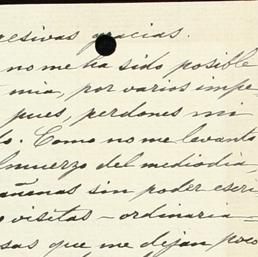 resivas gracias.
no me ha sido posible
mia, por varios impe
pues, perdones mi
do. Como no me levanto
lmuerzo del mediodia,
añanas sin poder escri
visitas - ordinaria =
sas que me dejan poco